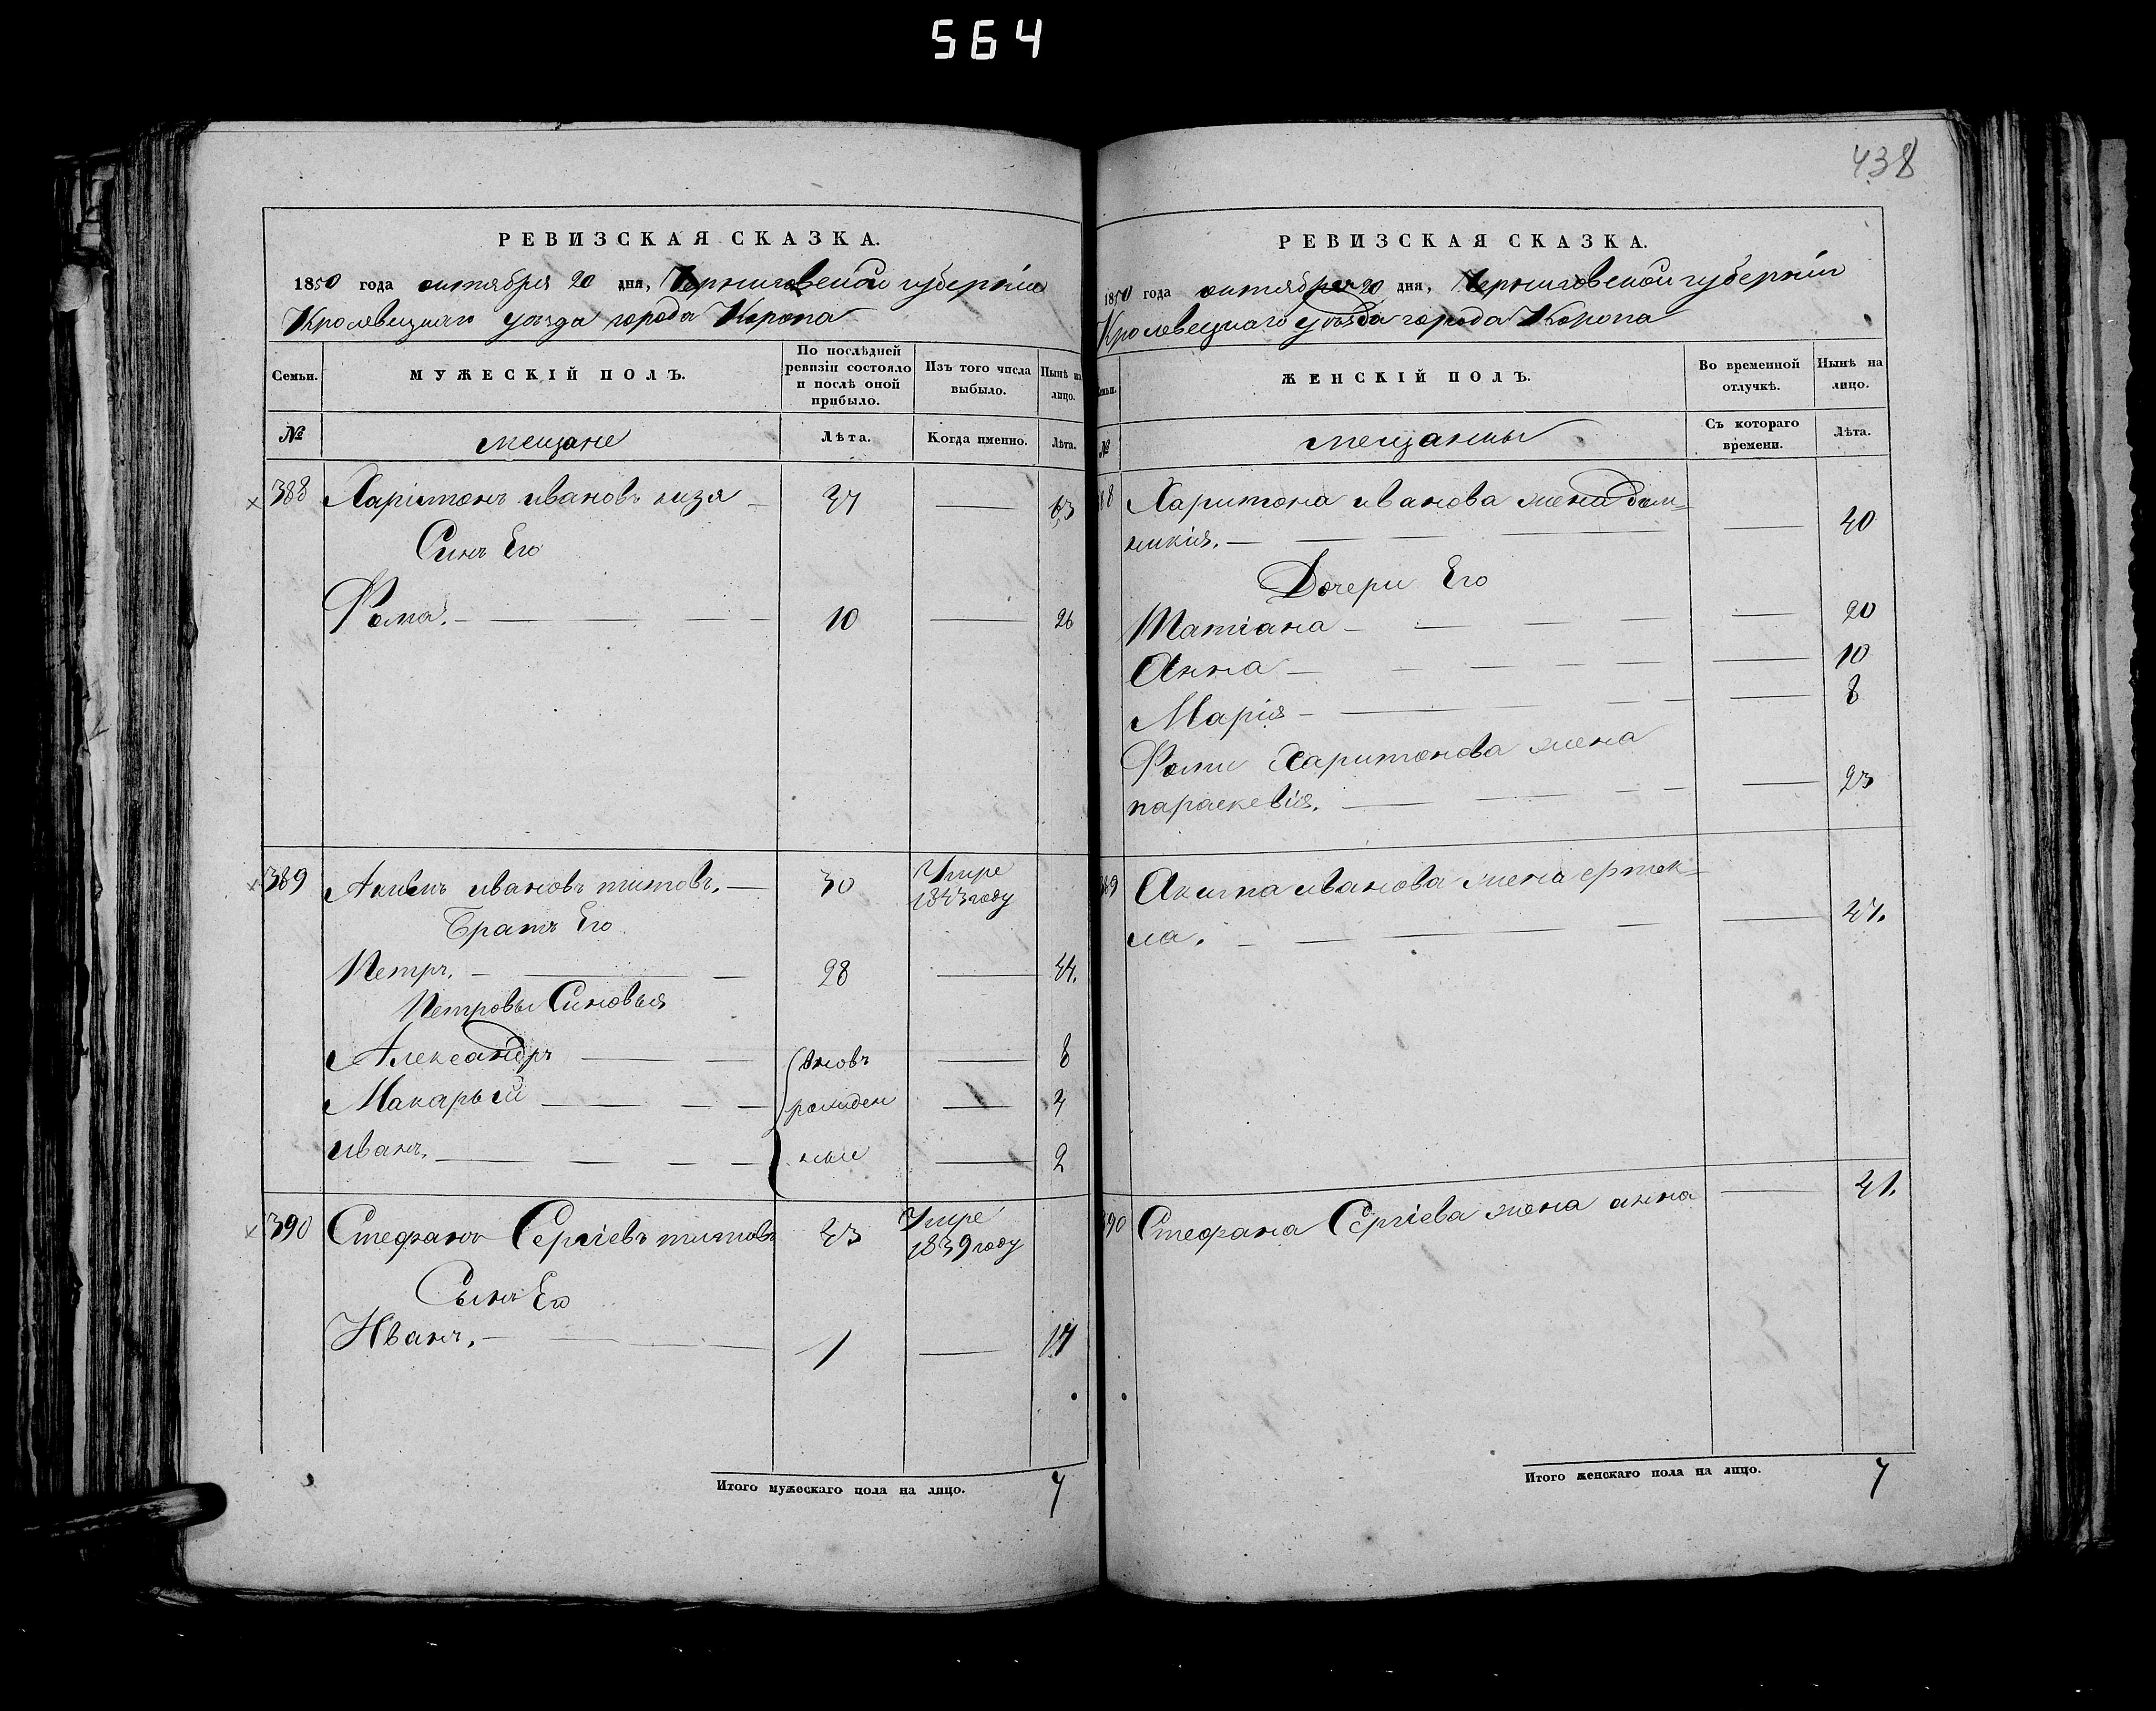 564
438
РЕВИЗСКАЯ СКАЗКА.
1850 года октября 20 дня, Черниговской губерніи
Кролевецкаго уѣзда города Коропа
Семьи. МУЖЕСКІЙ ПОЛЪ. По послѣдней ревизіи состояло и послѣ оной прибыло. Изъ того числа выбыло. Нынѣ на лицо.
№ мещане Лѣта. Когда именно. Лѣта.
388 Харітонъ ивановъ кизя 37 — 53
Синъ Его
Фома. — 10 — 26
389 Акимъ ивановъ титовъ. — 30 Умре 1843 году
Братъ Его
Петръ. — 28 — 44.
Петровы Синовья
Александръ — вновь — 8
Макарый — рожден — 4
иванъ. — ные — 2
390 Стефанъ Сергіевъ титовъ 43 Умре 1839 году
Сынъ Его
Иванъ. — 1 — 17
Итого мужескаго пола на лицо. 7
РЕВИЗСКАЯ СКАЗКА.
1850 года октября 20 дня, Черниговской губерніи
Кролевецкаго уѣзда города Коропа
Семьи. ЖЕНСКІЙ ПОЛЪ. Во временной отлучкѣ. Нынѣ на лицо.
№ мещанки Съ котораго времени. Лѣта.
88 Харитона иванова жена дом-
никия. — 40
Дочери Его
Татіана — 20
Анна — 10
Марія — 8
Фоми Харитонова жена
параскевія. — 23
389 Акима иванова жена
ла. — 47.
390 Стефана Сергіева жена анна — 41.
Итого женскаго пола на лицо. 7